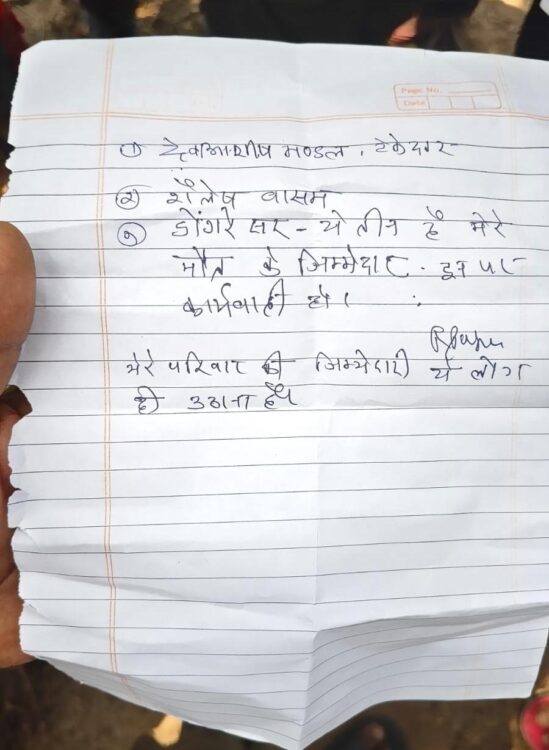 Page No.
Date
① देवाशीष मण्डल, ठेकेदार
② शैलेष वासम
③ डोंगरे सर - ये तीन है मेरे
मौत के जिम्मेदार. इन पर
कार्यवाही हो।
मेरे परिवार की जिम्मेदारी ये लोग
ही उठाना है